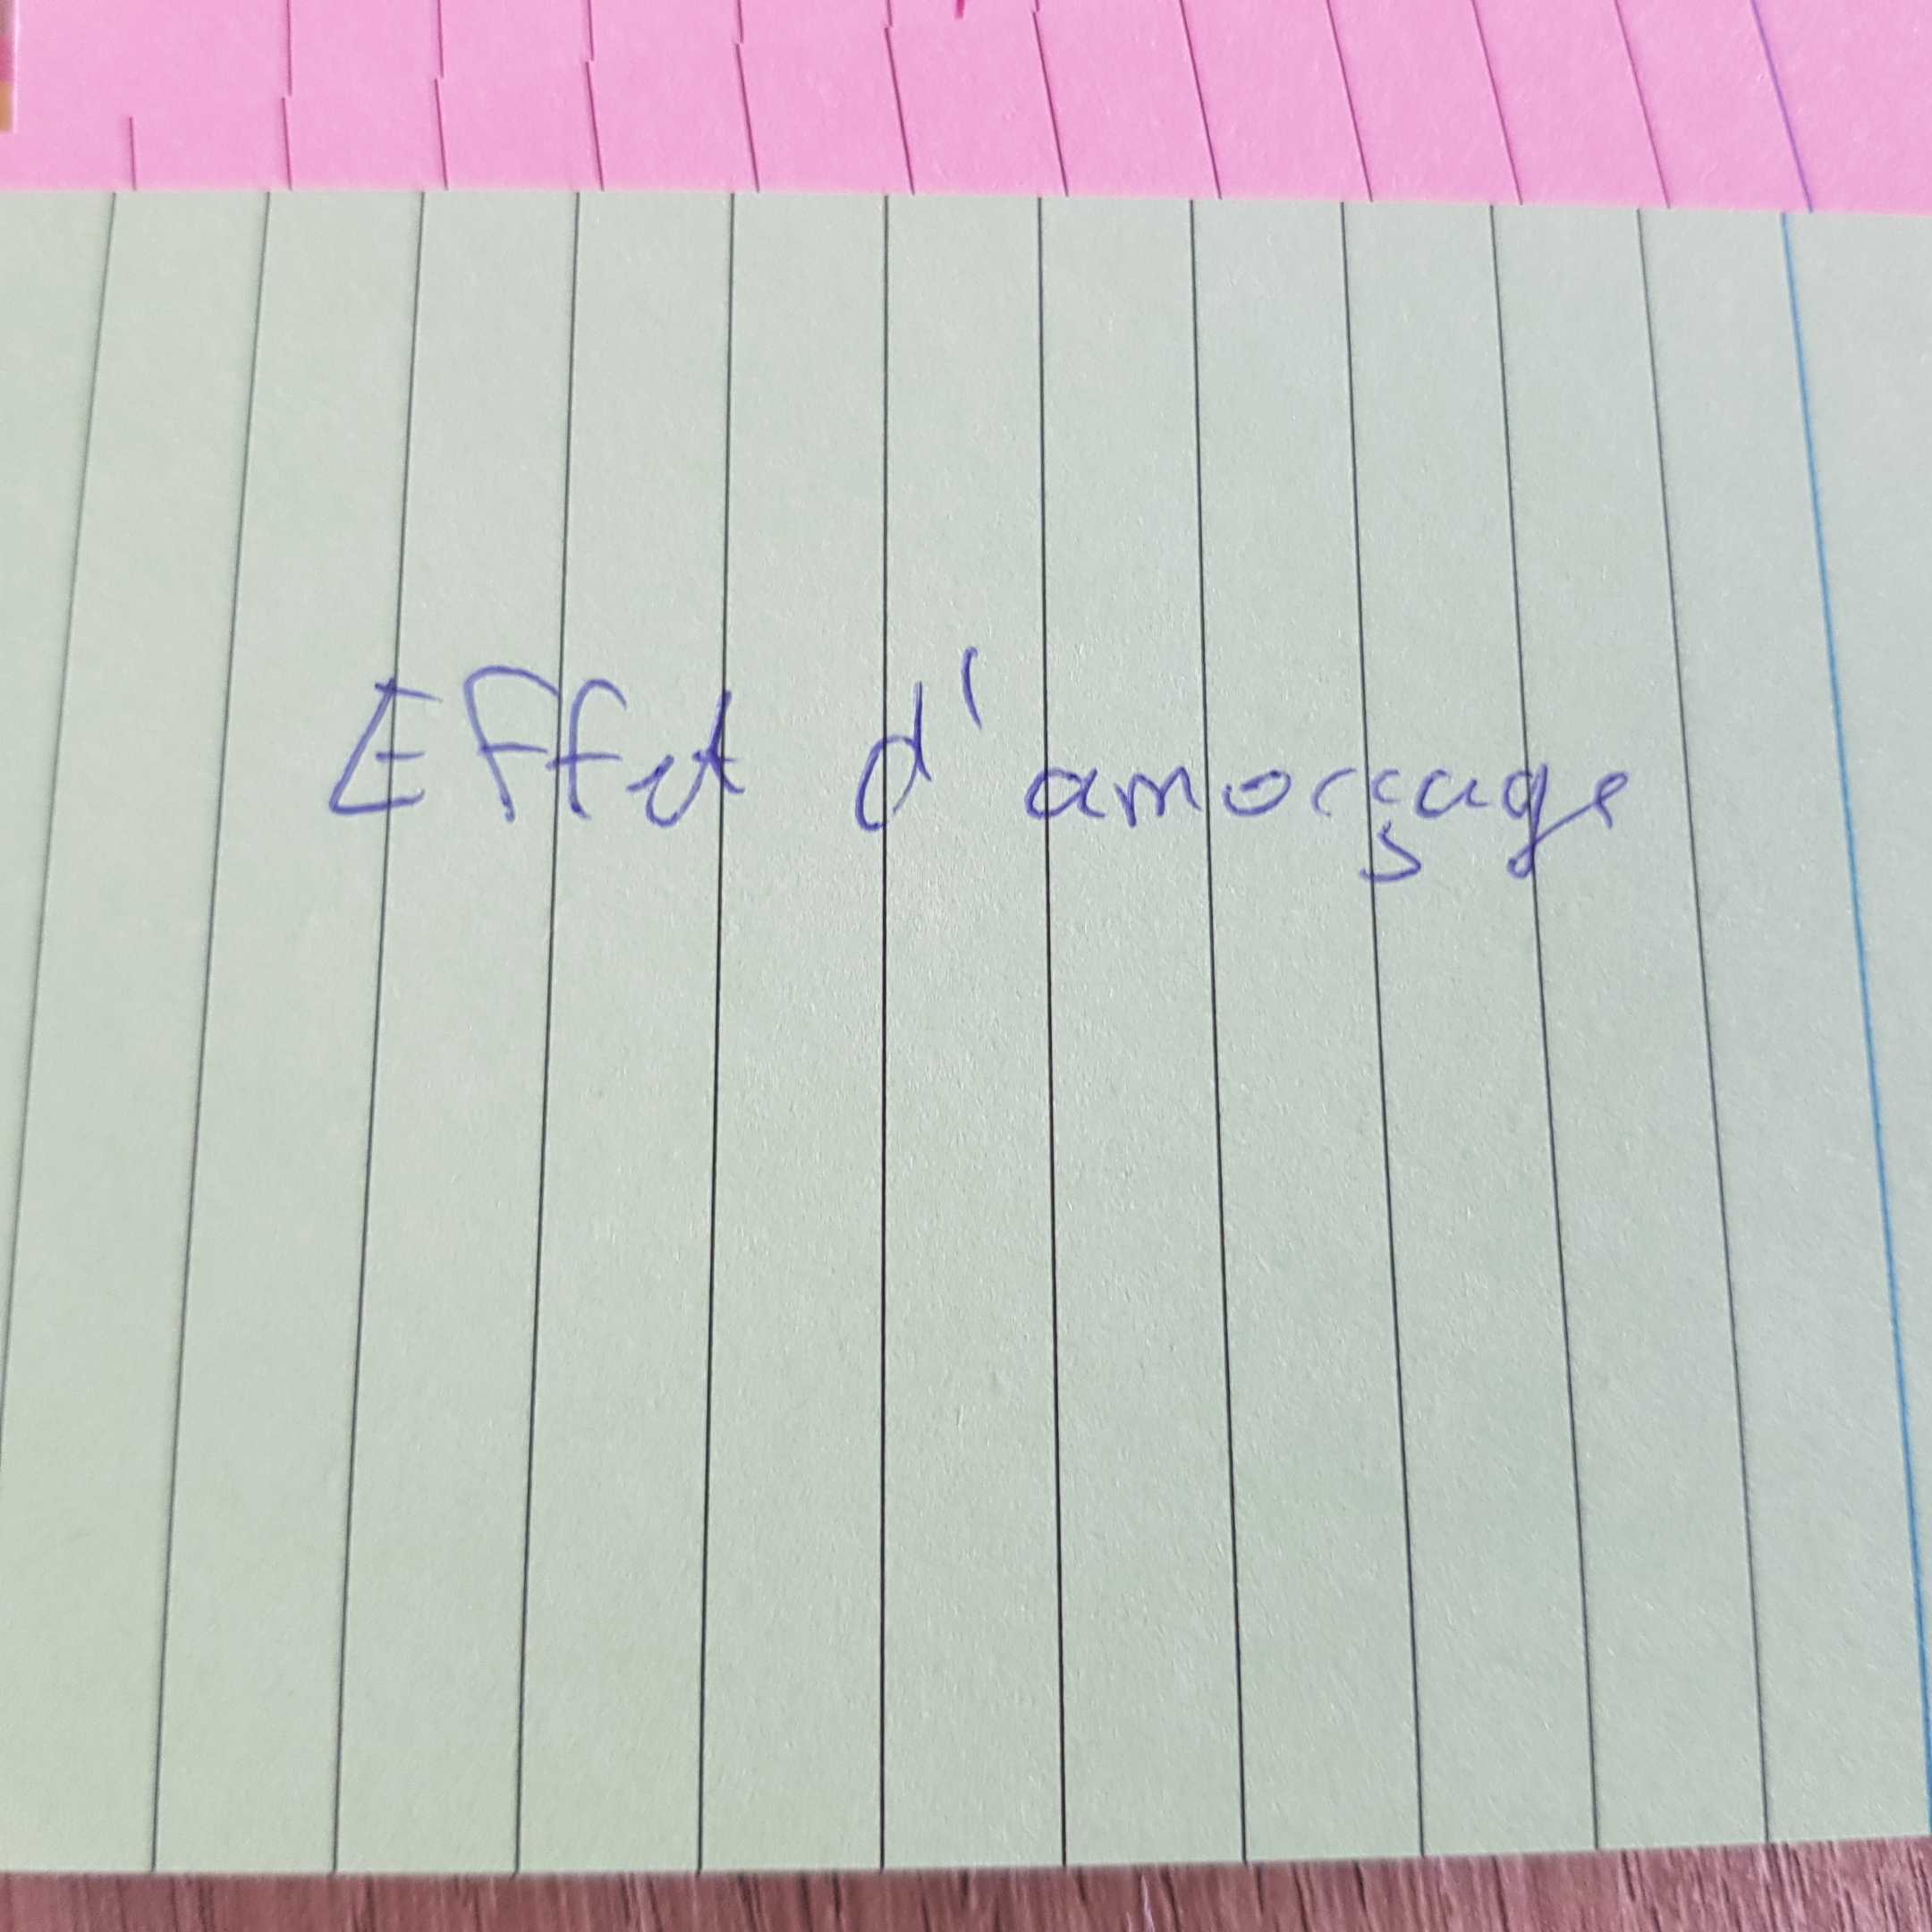 Effet d'amorçage